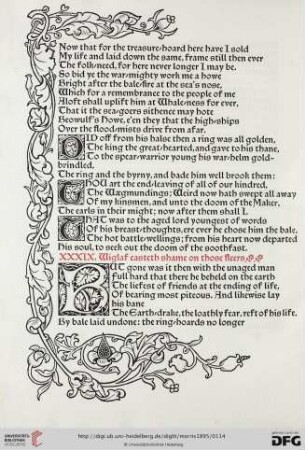 Now that for the treasure-hoard here have I sold
My life and laid down the same, frame still then ever
The folk-need, for here never longer I may be.
So bid ye the war-mighty work me a howe
Bright after the bale-fire at the sea's nose,
Which for a remembrance to the people of me
Aloft shall uplift him at Whale-ness for ever,
That it the sea-goers sithence may hote
Beowulf's Howe, e'en they that the high-ships
Over the flood-mists drive from afar.
DID off from his halse then a ring was all golden,
The king the great-hearted, and gave to his thane,
To the spear-warrior young his war-helm gold-
brindled,
The ring and the byrny, and bade him well brook them:
THOU art the end-leaving of all of our kindred,
The Wagmundings; Weird now hath swept all away
Of my kinsmen, and unto the doom of the Maker,
The earls in their might; now after them shall I.
THAT was to the aged lord youngest of words
Of his breast-thoughts, ere ever he chose him the bale,
The hot battle-wellings; from his heart now departed
His soul, to seek out the doom of the soothfast.
XXXIX. Wiglaf casteth shame on those fleers.
BUT gone was it then with the unaged man
Full hard that there he beheld on the earth
The liefest of friends at the ending of life,
Of bearing most piteous. And likewise lay
his bane
The Earth-drake, the loathly fear, reft of his life,
By bale laid undone: the ring-hoards no longer
UNIVERSITÄTS-
BIBLIOTHEK
HEIDELBERG
http://digi.ub.uni-heidelberg.de/diglit/morris1895/0114
© Universitätsbibliothek Heidelberg
gefördert durch die
DFG